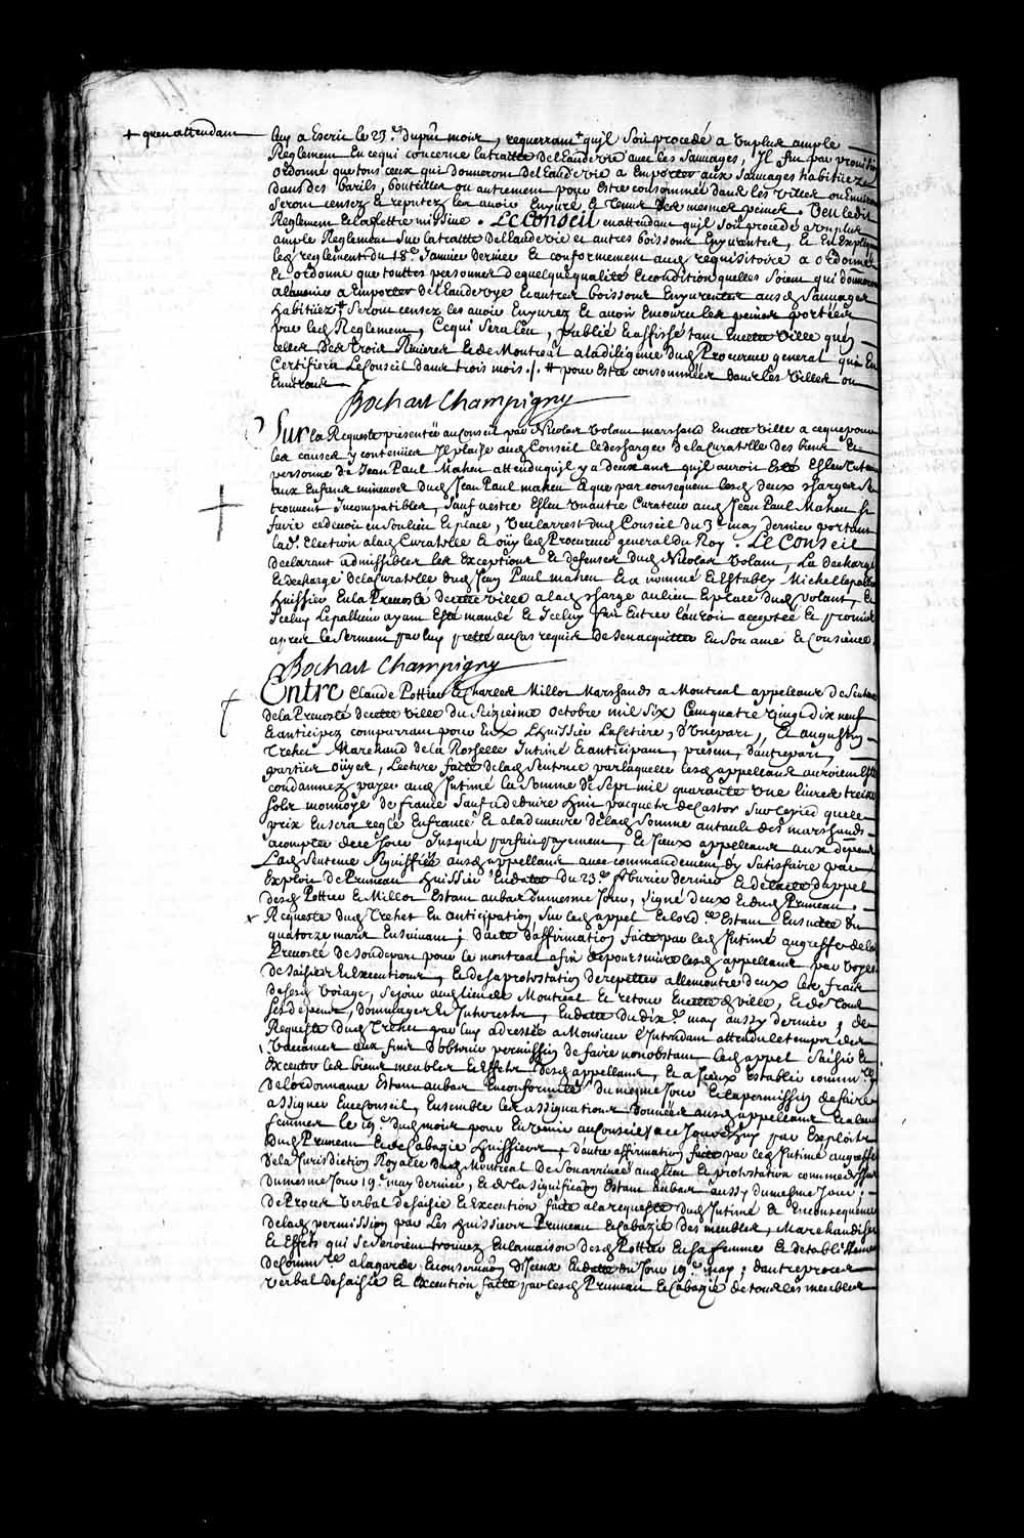 + quen attendant
luy a Escrit le 23.e du prñt mois, requerrant + quil soit procedé a un plus ample
Reglement En cequi concerne la traitte del Eaudevie avec les Sauvages, Il fut par provision
ordonné que tous ceux qui donneront del Eaudevie a Emporter aux Sauvages habituez
dans des barils, bouteilles ou autrement pour Estre consommée dans les Villes ou Environs
Seront censez et reputez les avoir Enyuré et tenus des mesmes peines. Veu ledit
Reglement et la lettre missive. Le Conseil en attendant quil soit procedé a un plus
ample Reglement Sur la traitte del Eaudevie et autres boissons Enyurantes, et En Expliquant
led reglement du 18.e Janvier dernier et conformement aud requisitoire a ordonné
et ordonne que touttes personnes de quelque qualité et condition quelles soient qui donneront
alavenir a Emporter del Eaudevye et autres boissons Enyurantes ausd Sauvages
habituez # Seront censez les avoir Enyurez et avoir Encouru les peines portées
par led Reglement, Ce qui sera leu, publié et affiché tant En cette ville quen
celles des trois Rivieres et de Montreal ala diligence dud Procureur general qui En
Certifiera Le Conseil dans trois mois ./. # pour Estre consommées dans les Villes ou
Environs
Bochart Champigny
Sur la Requeste presentée au Conseil par Nicolas Volant marchand En cette ville a ce que pour
les causes y contenues Il plaise aud Conseil le descharger de la Curatelle des biens et
personne de Jean Paul Maheu attendu quil y a deux ans quil auroit Esté Esleu tuteur
aux Enfans mineurs dud Jean Paul maheu et que par consequent lesd deux charges se
trouvent Incompatibles, Sauf a estre Esleu un autre Curateur aud Jean Paul Maheu Si
faire ce devoit en Son lieu et place, Veu larrest dud Conseil du 3.e may dernier portant
lad. Election alad Curatelle et oüy led Procureur general du Roy. Le Conseil
declarant admissibles les Exceptions et defenses dud Nicolas Volant, La deschargé
et descharge de la Curatelle dud Jean Paul maheu et a nommé et Estably Michel lepallieur
huissier En la Prevosté de cette ville alad charge au lieu et place dud Volant, et
Iceluy Lepallieur ayant Esté mandé et Iceluy fait Entrer lauroit acceptée et promis
apres le Serment par luy presté au cas requis de Sen acquitter En Son ame et Consience.
Bochart Champigny
Entre Claude Pottier et Charles Millot Marchands a Montreal appellans de Sentence
de la Prevosté de cette ville du Seizieme octobre mil Six Cens quatre vingt dix neuf
et anticipez comparrant pour Eux L'huissier La Cetiere, d'une part, et augustin
Trehet Marchand de la Rochelle Intimé et anticipant, present, dautre part,
parties oüyes, Lecture faite de lad Sentence par laquelle lesd appellans auroient Esté
condamnez payer aud Intimé la Somme de Sept mil quarante une livres treize
Sols monnoye de france Sauf a deduire huit pacquets de Castor Sur le pied que le
prix En sera reglé En france et a la demeure de lad Somme au taux des marchands
a compter de ce Jour Jusqua parfait payement, et Iceux appellans aux depens
Lad Sentence Signiffiée ausd appellans avec commandement dy Satisfaire par
Exploit de Pruneau huissier En datte du 23.e fevrier dernier et de lacte dappel
desd Pottier et Millot Estant au bas du mesme Jour, Signé deux et dud Pruneau.
Requeste dud Trehet En anticipation Sur led appel et lord.ce Estant En suitte du
quatorze mars Ensuivant; dacte daffirmation faite par led Intimé au greffe de la
Prevosté de Son depart pour le montreal afin de poursuivre lesd appellans par voye
de Saisie et Executions, et de sa protestation de repetter allencontre deux les frais
de ses voiage, Sejour aud lieu de Montreal et retour En cette d ville, et de tous
Ses depens, dommages et Interests, En datte du dix.e may aussy dernier; de
Requeste dud Trehet par luy adressée a Monsieur l'Intendant attendu le temps des
Vaccances aux fins dobtenir permission de faire nonobstant led appel Saisir et
Executer les biens meubles et Effets desd appellans, et a Iceux Establir comm.re
de lordonnance Estant au bas En conformité du mesme Jour et la permission de faire
assigner Aud Conseil, Ensemble les assignations données ausd appellans et a leurs
femmes le 19.e dud mois pour En venir au Conseil a ce Jourdhuy par Exploits
dud Pruneau et de Cabazié huissiers; dautre affirmation faite par led Intimé au greffe
de la Jurisdiction Royalle dud Montreal de Son arrivée aud lieu et protestation comme dessus
du mesme Jour 19.e may dernier, et de la Signification Estant au bas aussy du mesme Jour;
de Procés verbal de Saisie et Execution faite a la requeste dud Intimé et En consequence
de lad permission par Les huissiers Pruneau et Cabazié des meubles, Marchandises
et Effets qui Se seroient trouvez En la maison desd Pottier et Sa femme et detablissement
de Comm.re a la garde et conservation diceux En datte du Jour 19.e may; dautre procés
verbal de Saisie et Execution faite par lesd Pruneau et Cabazié de tous les meubles